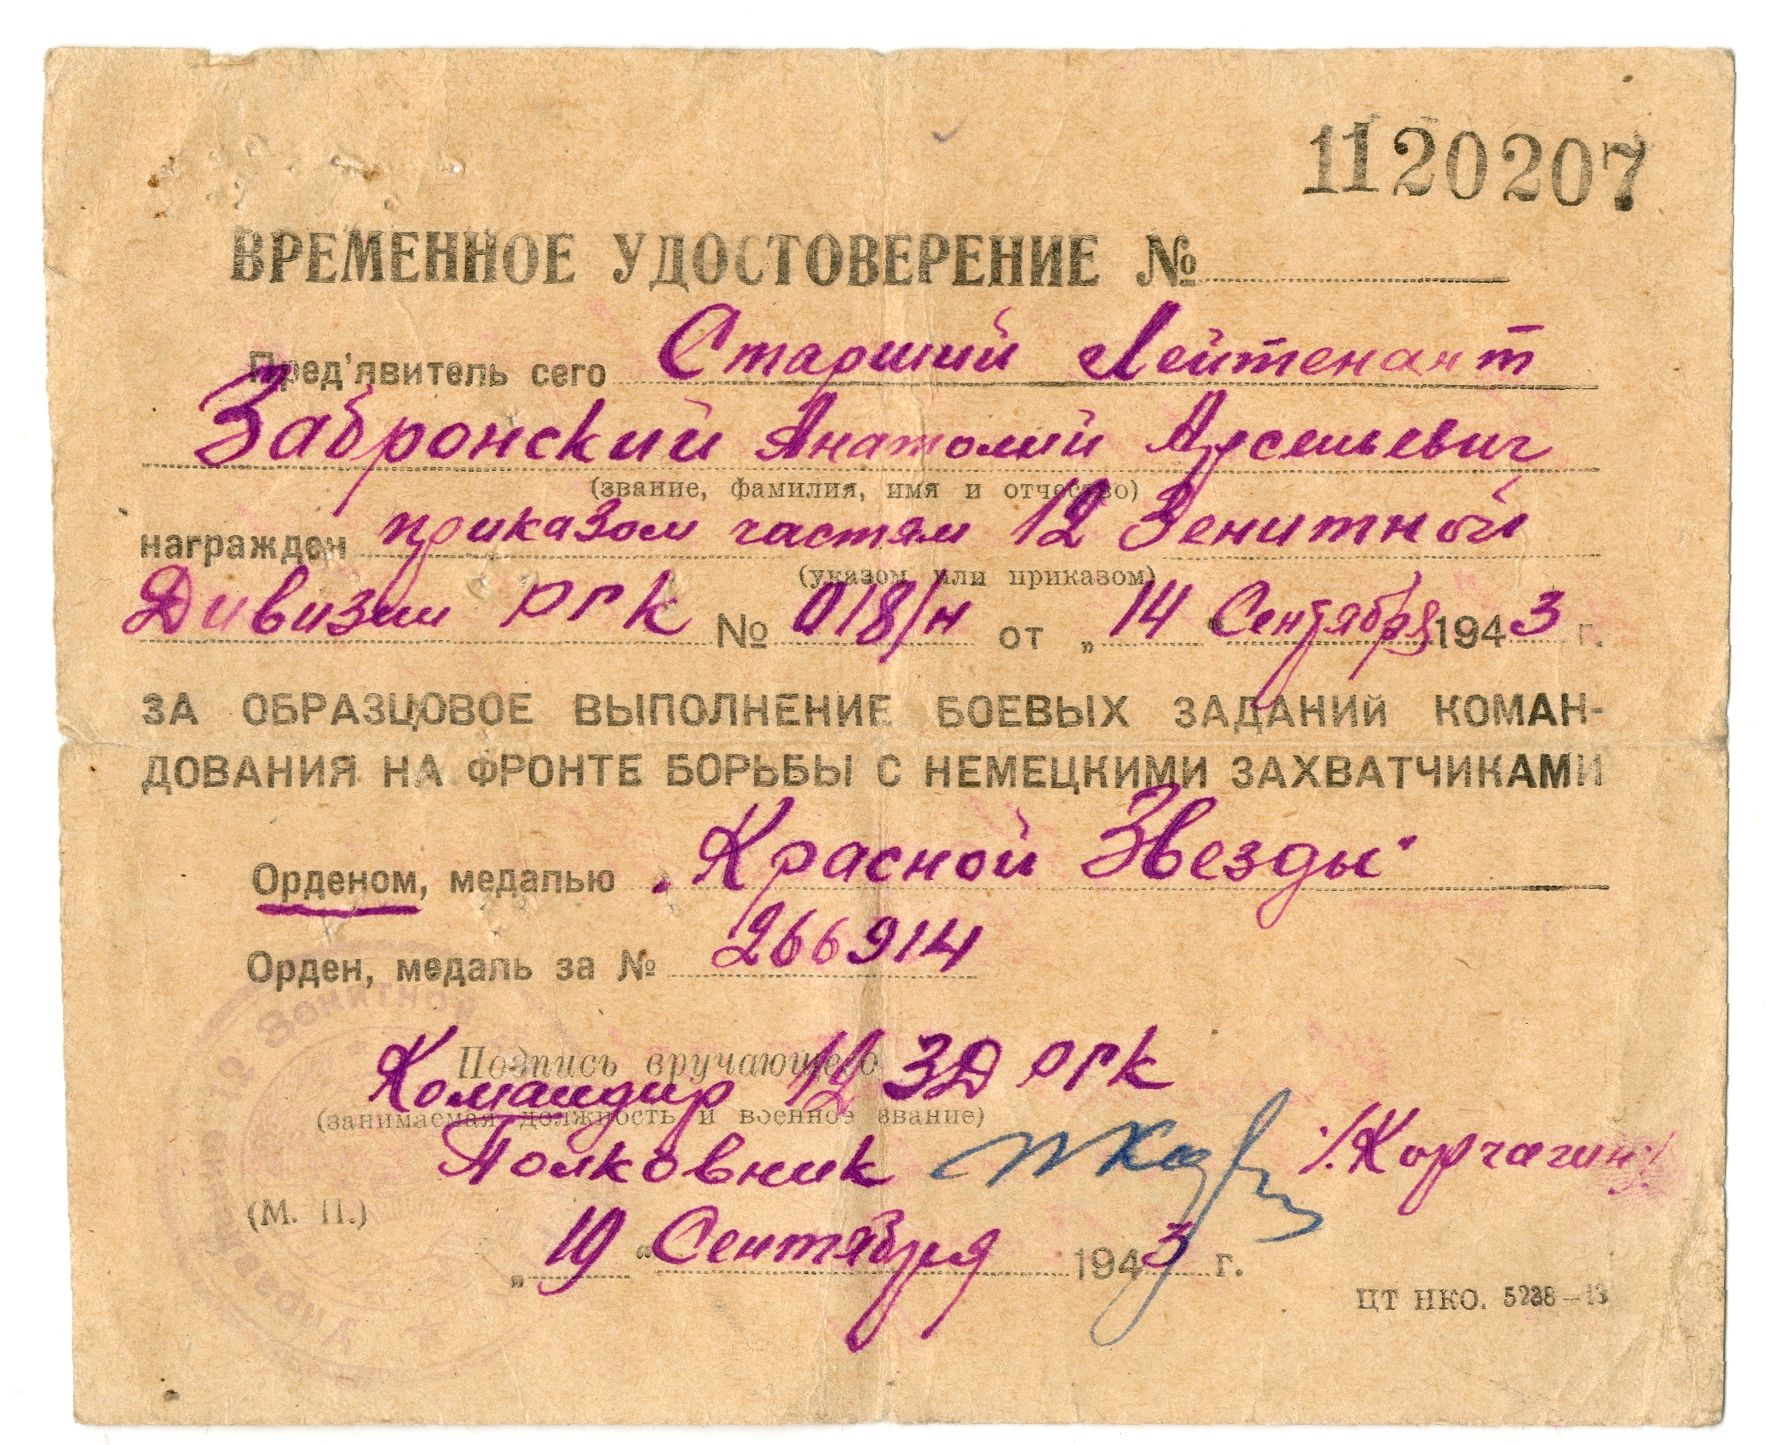 1120207
ВРЕМЕННОЕ УДОСТОВЕРЕНИЕ №
Пред'явитель сего Старший Лейтенант
Забронский Анатолий Арсеньевич
(звание, фамилия, имя и отчество)
награжден приказом частям 12 Зенитной
(указом или приказом)
Дивизии РГК № 018/н от „14 Сентября 1943 г.
ЗА ОБРАЗЦОВОЕ ВЫПОЛНЕНИЕ БОЕВЫХ ЗАДАНИЙ КОМАН-
ДОВАНИЯ НА ФРОНТЕ БОРЬБЫ С НЕМЕЦКИМИ ЗАХВАТЧИКАМИ
Орденом, медалью „Красной Звезды"
Орден, медаль за № 266914
Подпись вручающего
Командир 12 ЗД РГК
(занимаемая должность и военное звание)
Полковник /Корчагин/
(М. П.)
„19 " Сентября 1943 г.
ЦТ НКО. 5238—13
Управление 12 Зенитной